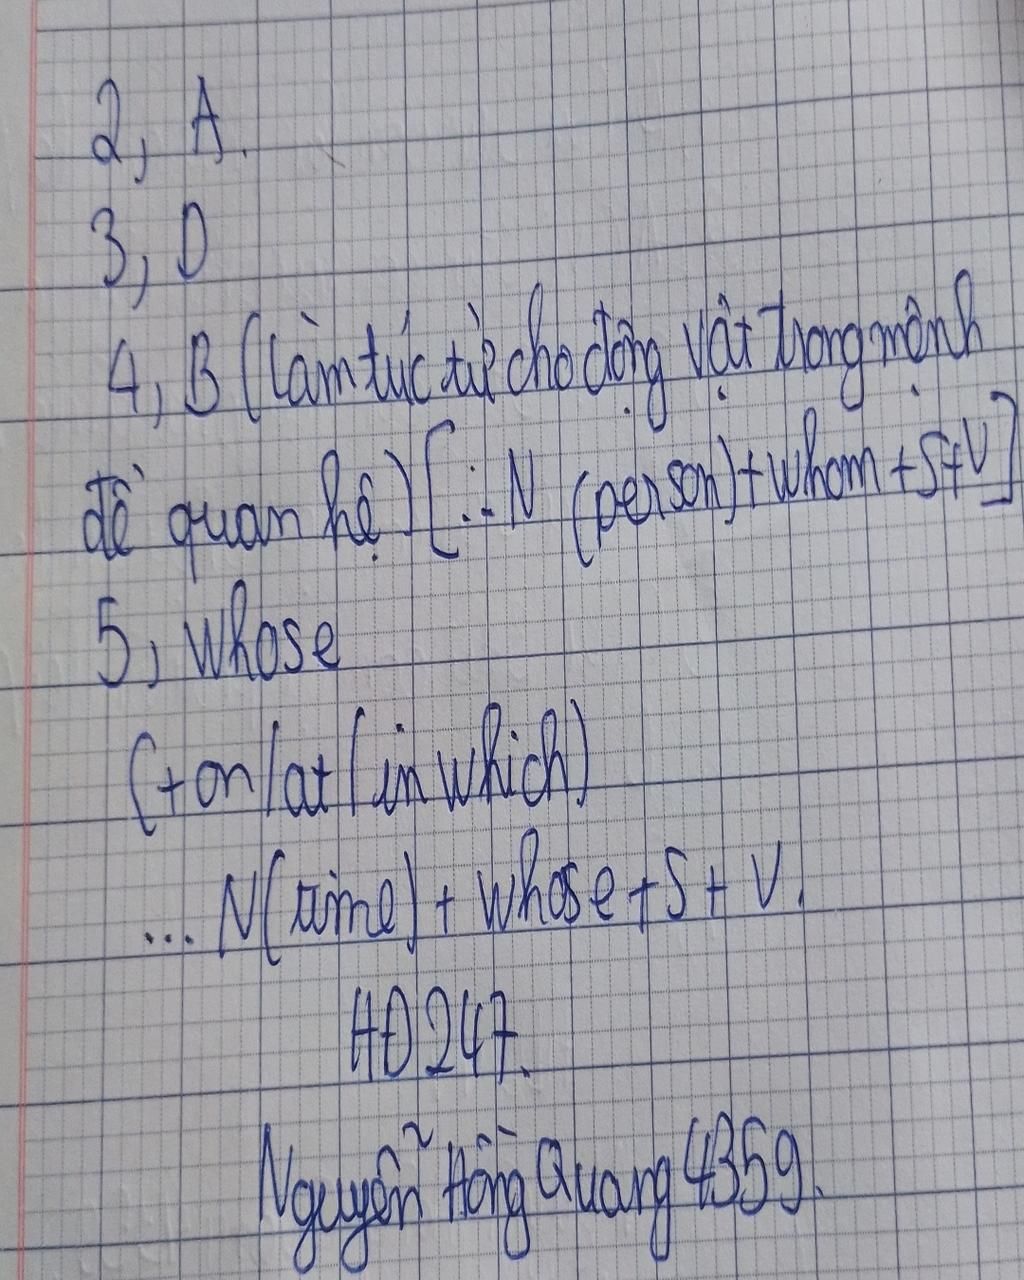 2, A.
3, D
4, B (làm túc từ cho động vật trong mệnh
đề quan hệ) [... N (person) + whom + S + V]
5, whose
(+ on / at / in which)
... N (time) + whose + S + V.
HĐ247.
Nguyễn Hồng Quang 4359.